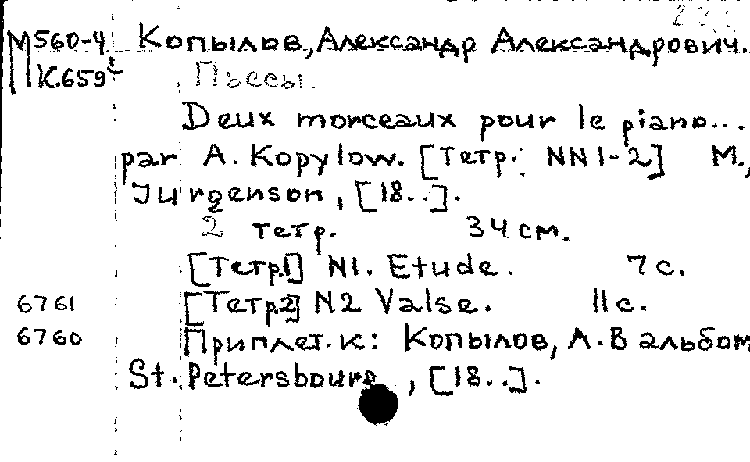 М560-4 Копылов, Александр Александрович.
К659 Пьесы.
Deux morceaux pour le piano...
par A. Kopylow. [Тетр. NN1-2] М.,
Jurgenson, [18..].
2 тетр. 34 см.
[Тетр.1] N1. Etude. 7 с.
6761 [Тетр.2] N2 Valse. 11 с.
6760 Приплет. к: Копылов, А. В альбом
St. Petersbourg, [18..].